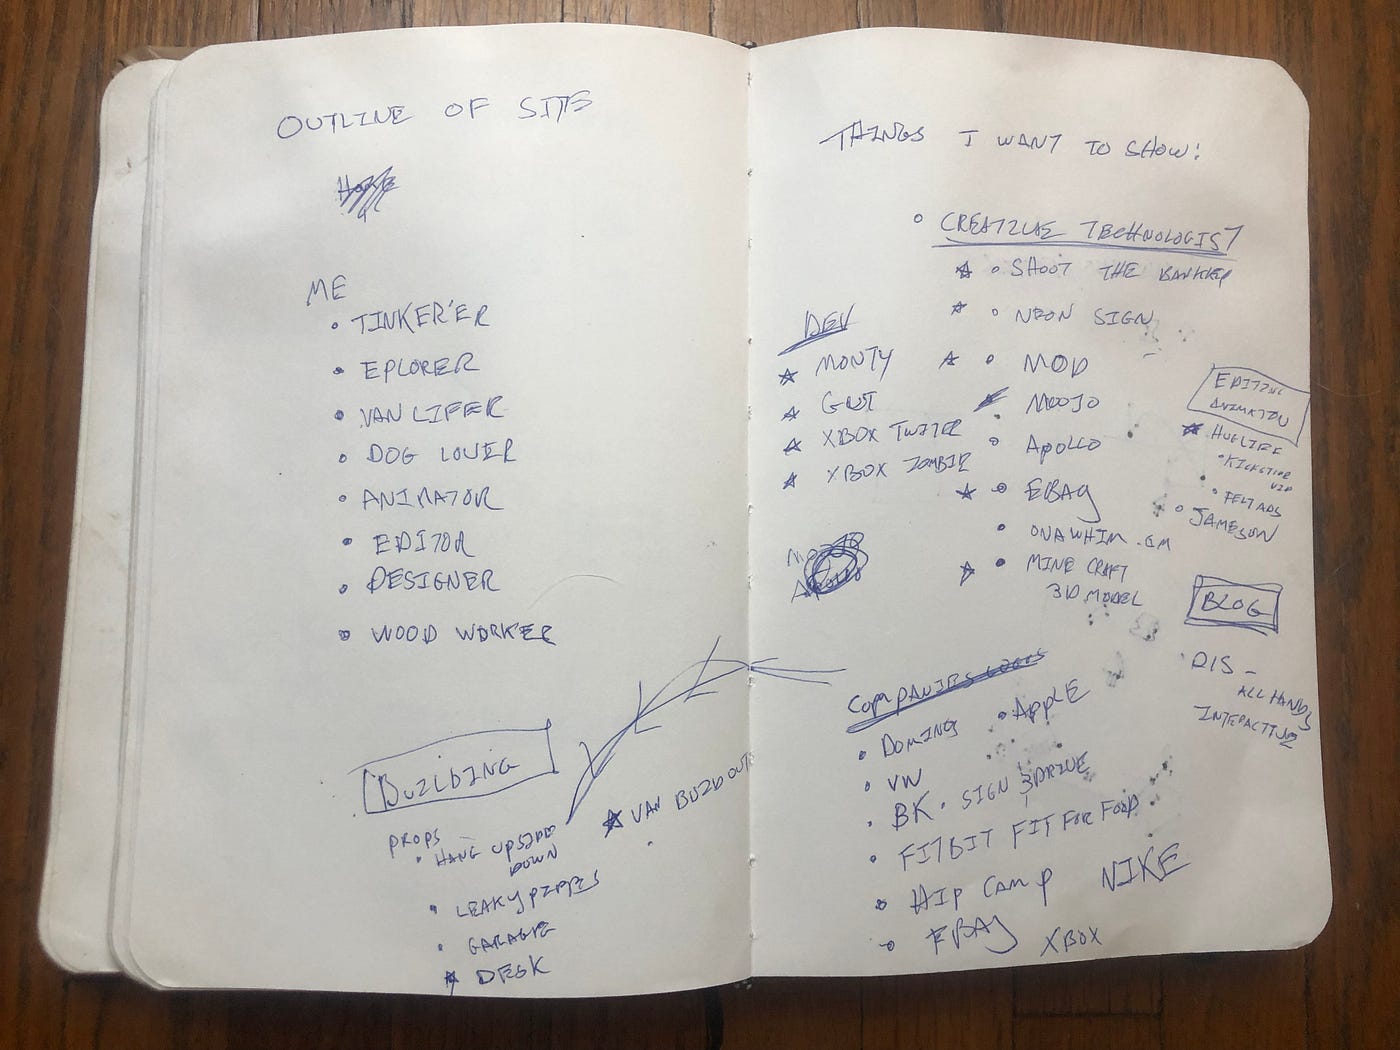 OUTLINE OF SITE
ME
• TINKER'ER
• EPLORER
• VAN LIFER
• DOG LOVER
• ANIMATOR
• EDITOR
• DESIGNER
• WOOD WORK'ER
BUILDING
PROPS -
• HANG UPSIDE
DOWN
• LEAKY PIPES
• GARAGE
☆ DESK
☆ VAN BUILD OUTS
THINGS I WANT TO SHOW:
• CREATIVE TECHNOLOGIST
☆ • SHOOT THE BANKER
☆ • NEON SIGN
☆ • MOD
• MOOJO
• APOLLO
☆ • EBAY
• ONAWHIM.COM
☆ • MINE CRAFT
3D MODEL
DEV
☆ MONTY
☆
☆ XBOX TWITTER
☆ XBOX ZOMBIE
EDITING
ANIMATION
☆ HUGLIFE
• KICKSTARTER
VID
• FELT ADS
• JAMESON
BLOG
DIS -
ALL HANDS
INTERACTIVE
COMPANIES LOGOS
• DOMINOS • APPLE
• VW
• BK • SIGN 3DRIVE
• FITBIT FIT FOR FOOD
• HIP CAMP NIKE
• EBAY XBOX